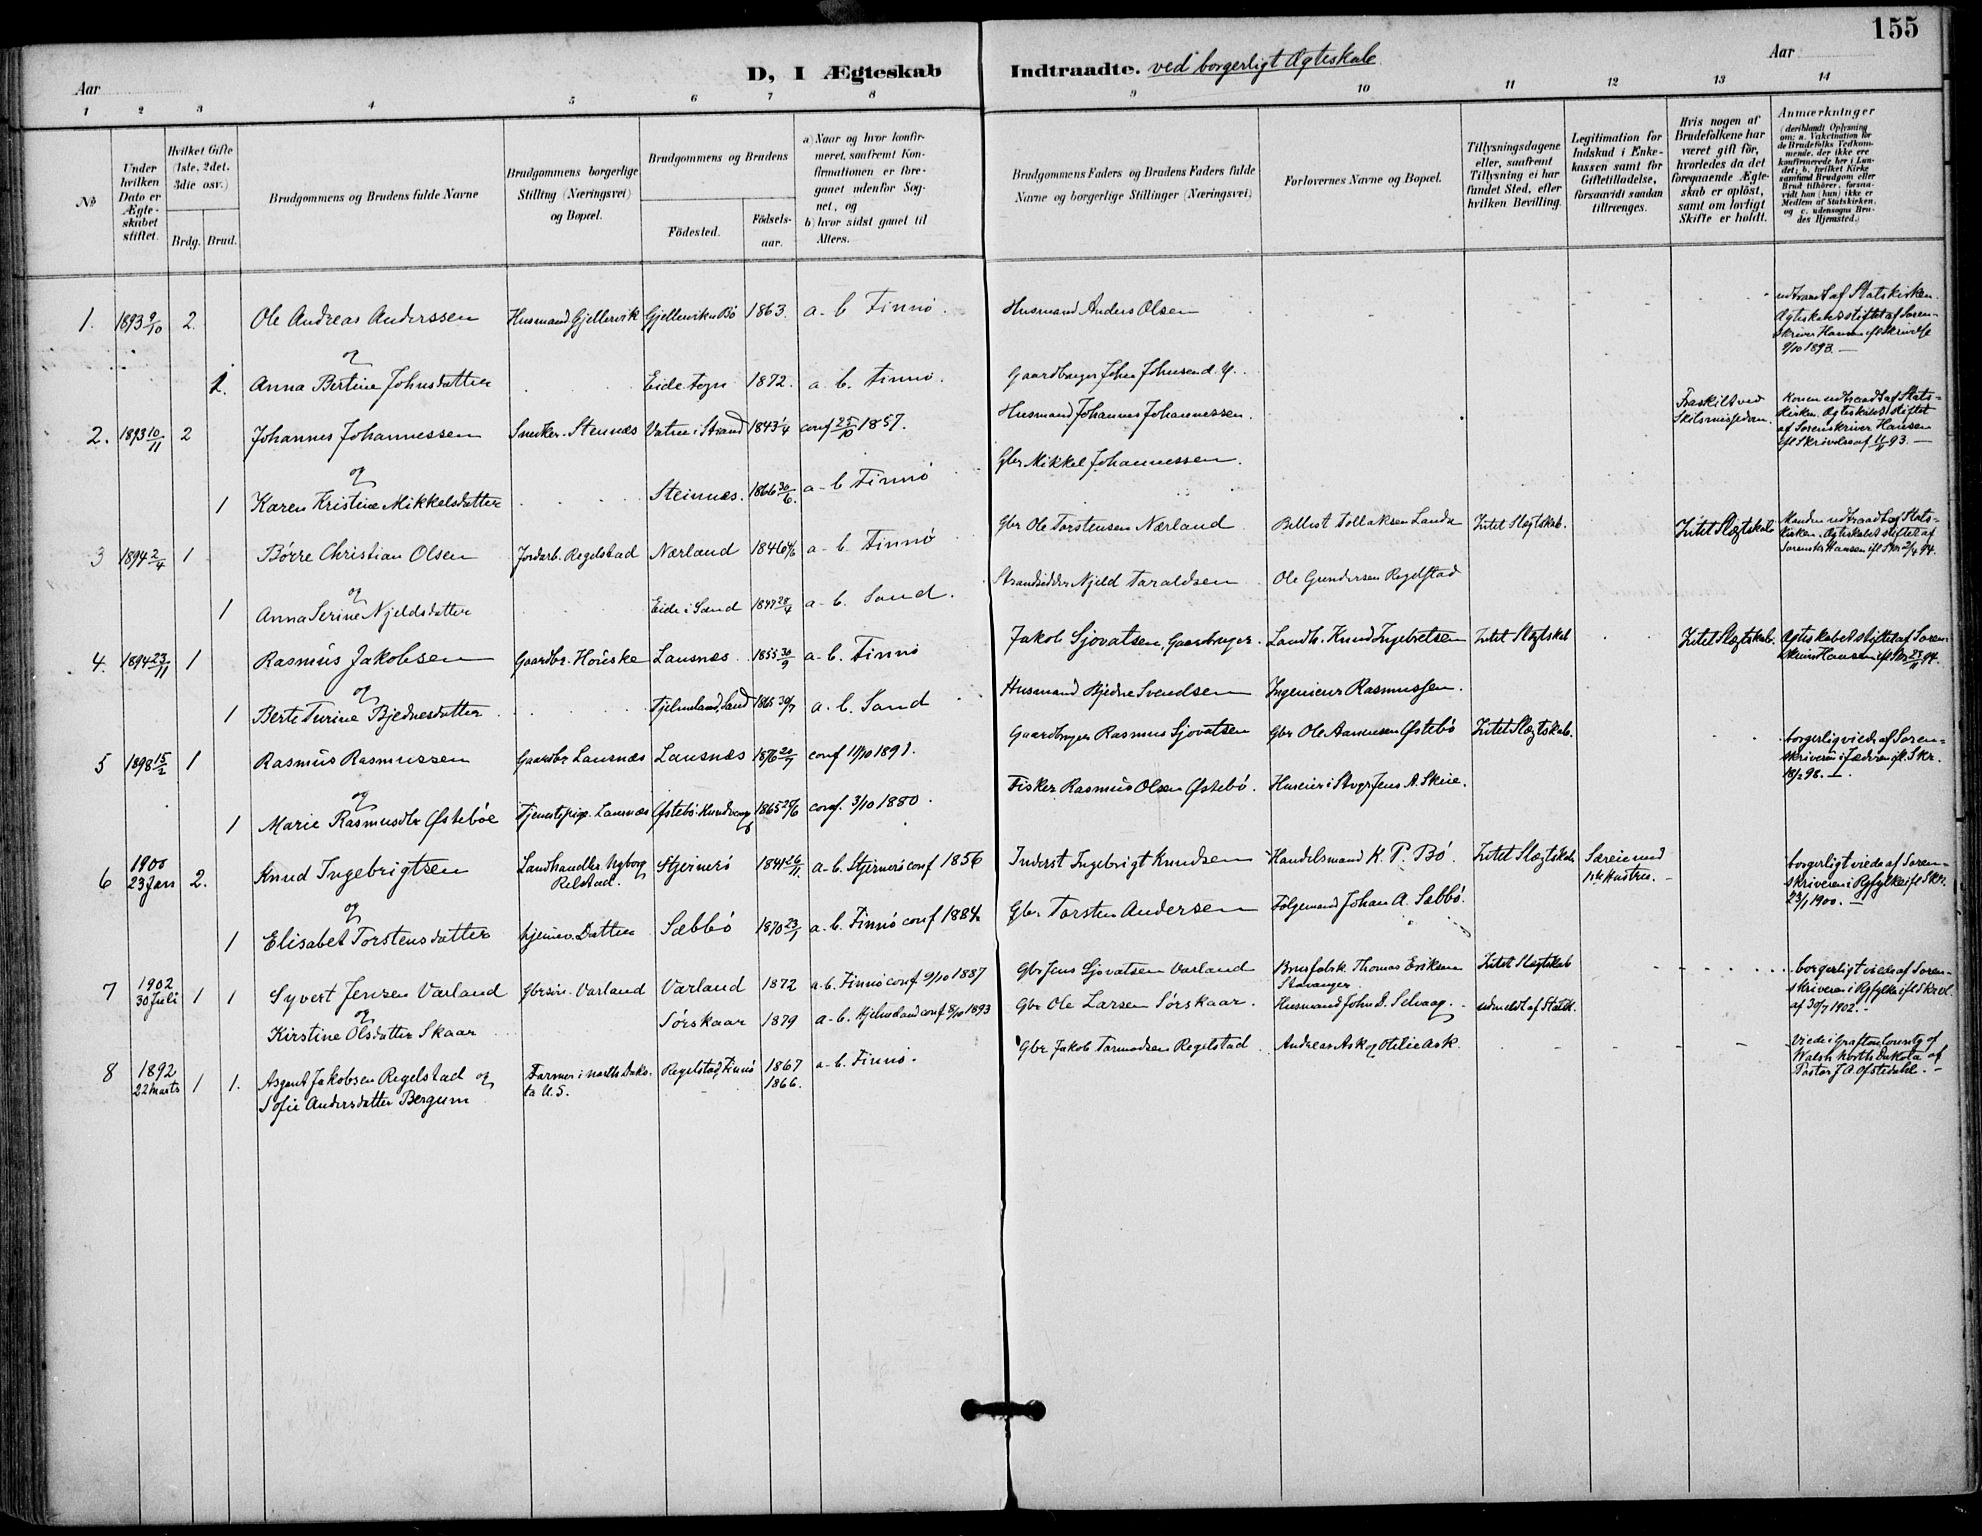 155
D, I Ægteskab Indtraadte. ved borgerligt Ægteskab
Aar
Aar
1 2 3 4 5 6 7 8 9 10 11 12 13 14
No
Under hvilken Dato er Ægteskabet stiftet.
Hvilket Gifte (1ste, 2det. 3die osv.)
Brdg. Brud.
Brudgommens og Brudens fulde Navne
Brudgommens borgerlige Stilling (Næringsvei) og Bopæl.
Brudgommens og Brudens
Fødested.
Fødselsaar.
a) Naar og hvor konfirmeret, saafremt Konfirmationen er foregaaet udenfor Sognet, og
b) hvor sidst gaaet til Alters.
Brudgommens Faders og Brudens Faders fulde Navne og borgerlige Stillinger (Næringsvei)
Forlovernes Navne og Bopæl.
Tillysningsdagene eller, saafremt Tillysning ei har fundet Sted, efter hvilken Bevilling.
Legitimation for Indskud i Enkekassen samt for Giftetilladelse, forsaavidt saadan tiltrænges.
Hvis nogen af Brudefolkene har været gift før, hvorledes da det foregaaende Ægteskab er opløst, samt om lovligt Skifte er holdt.
Anmærkninger
(deriblandt Oplysning om: a. Vakcination for de Brudefolks Vedkommende, der ikke ere konfirmerede her i Landet; b. hvilket Kirkesamfund Brudgom eller Brud tilhører, forsaavidt han (hun) ikke er Medlem af Statskirken, og c. udensogns Brudes Hjemsted.)
1. 1893 9/10 2. Ole Andreas Anderssen Husmand Gjellervik Gjellervik u Bø 1863. a. b Finnø. Husmand Anders Olsen udtraadt af Statskirken. Ægteskabet stiftet af Sorenskriver Hansen ifl Skrivelse 9/10 1893.
og
1. Anna Bertine Johnsdatter Eide Sogn 1872. a. b. Finnø. Gaardbruger John Johnsen d. y.
2. 1893 10/11 2 Johannes Johannessen Snedker. Stennæs Vatne i Strand 1843 1/4 conf 25/10 1857. Husmand Johannes Johannessen. Fraskilt ved Skilsmissedom. Konen udtraadt af Statskirken. Ægteskabet stiftet af Sorenskriver Hansen ifl Skrivelse af 11/11 93.
og
1 Karen Kristine Mikkelsdatter Steinnæs. 1866 30/6. a - b Finnø Gbr Mikkel Johannessen.
3 1894 2/4 1 Børre Christian Olsen Jordarb. Regelstad Nærland 1846 a - b. Finnø Gbr Ole Torstensen Nærland Tollaksen Landa Intet Slægtskab. Intet Slægtskab Manden udtraadt af Statskirken. Ægteskabet stiftet af Sorenskr Hansen ifl Skr 2/4 94.
og
1 Anna Serine Njeldsdatter Eide i Sand 1847 28/4 a - b. Sand. Strandsidder Njeld Taraldsen Ole Gundersen Regelstad
4. 1894 23/11 1 Rasmus Jakobsen Gaardbr. Houske Lausnæs 1855 30/9 a - b. Finnø Jakob Sjovatsen, Gaardbruger. Landh. Knud Ingebretsen Intet Slægtskab Intet Slægtskab. Ægteskabet stiftet af Sorenskriver Hansen ifl Skr 23/11 94.
og
1 Berte Turine Bjednesdatter Tjelmeland, Sand 1865 30/7 a. b. Sand Husmand Bjedne Svendsen Ingenieur Rasmussen.
5 1898 15/2 1 Rasmus Rasmussen Gaardbr Lausnæs Lausnæs 1876 20/7 conf 11/10 1891. Gaardbruger Rasmus Sjovatsen Gbr Ole Aanensen Østebø Intet Slægtskab. borgerlig viede af Sorenskriveren i Jæderen ifl. Skr. 18/2 98.
og
1 Marie Rasmusdtr Østebøe Tjenestepige. Lausnæs Østebø Hundvaag 1865 conf. 3/10 1880. Fisker Rasmus Olsen Østebø. Huseier i Stvgr Jens A. Skeie.
6 1900 23 Jan 2. Knud Ingebrigtsen Landhandler Nyborg Relstad. Stjernerø 1841 26/11 a. b. Stjernerø conf 1856 Inderst Ingebrigt Knudsen Handelsmand K. P. Bø. Intet Slægtskab. Særeie med Hustru. borgerligt viede af Sorenskriveren i Ryfylke ifl Skr. 23/1 1900.
og
1 Elisabet Torstensdatter hjemmev. Datter Sæbbø 1870 23/1 a. b. Finnø conf 1884 Gbr Torsten Andersen Følgemand Johan A. Sæbbø.
7 1902 30 Juli 1 1 Syvert Jensen Varland Gbrsøn. Varland Varland 1872 a. b. Finnø conf 9/10 1887 Gbr Jens Sjovatsen Varland Brusfabrk. Thomas Eriksen Stavanger. Intet Slægtskab borgerligt viede af Sorenskriveren i Ryfylke ifl Skrivl af 30/7 1902.
og
Kirstine Olsdatter Skaar Sørskaar 1879 a - b. Hjelmeland conf 8/10 1893 Gbr Ole Larsen Sørskaar. Husmand John D. Selvaag. udmeldt af Statsk.
8 1892 22 Marts 1 1. Asgaut Jakobsen Regelstad og Farmer i North Dakota U. S. Regelstad, Finnø 1867 a - b. Finnø. Gbr. Jakob Tormodsen Regelstad Andreas Ask og Otilie Ask. Viede i Grafton County of Walsh North Dakota af Pastor J A Ofstedahl.
Sofie Andersdatter Bergum 1866.